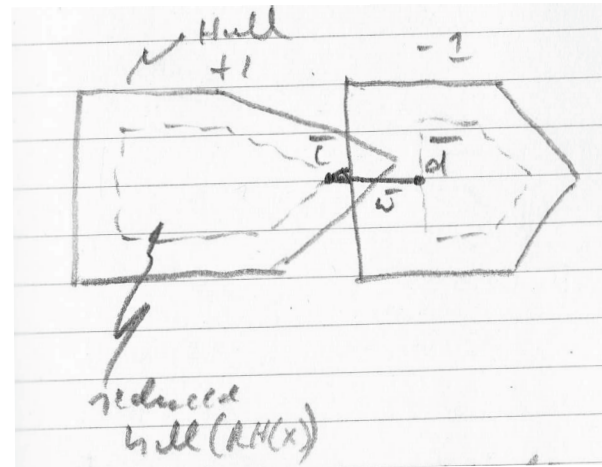 Hull
+1
-1
c̄
d̄
w̄
reduced
hull (RH(x))